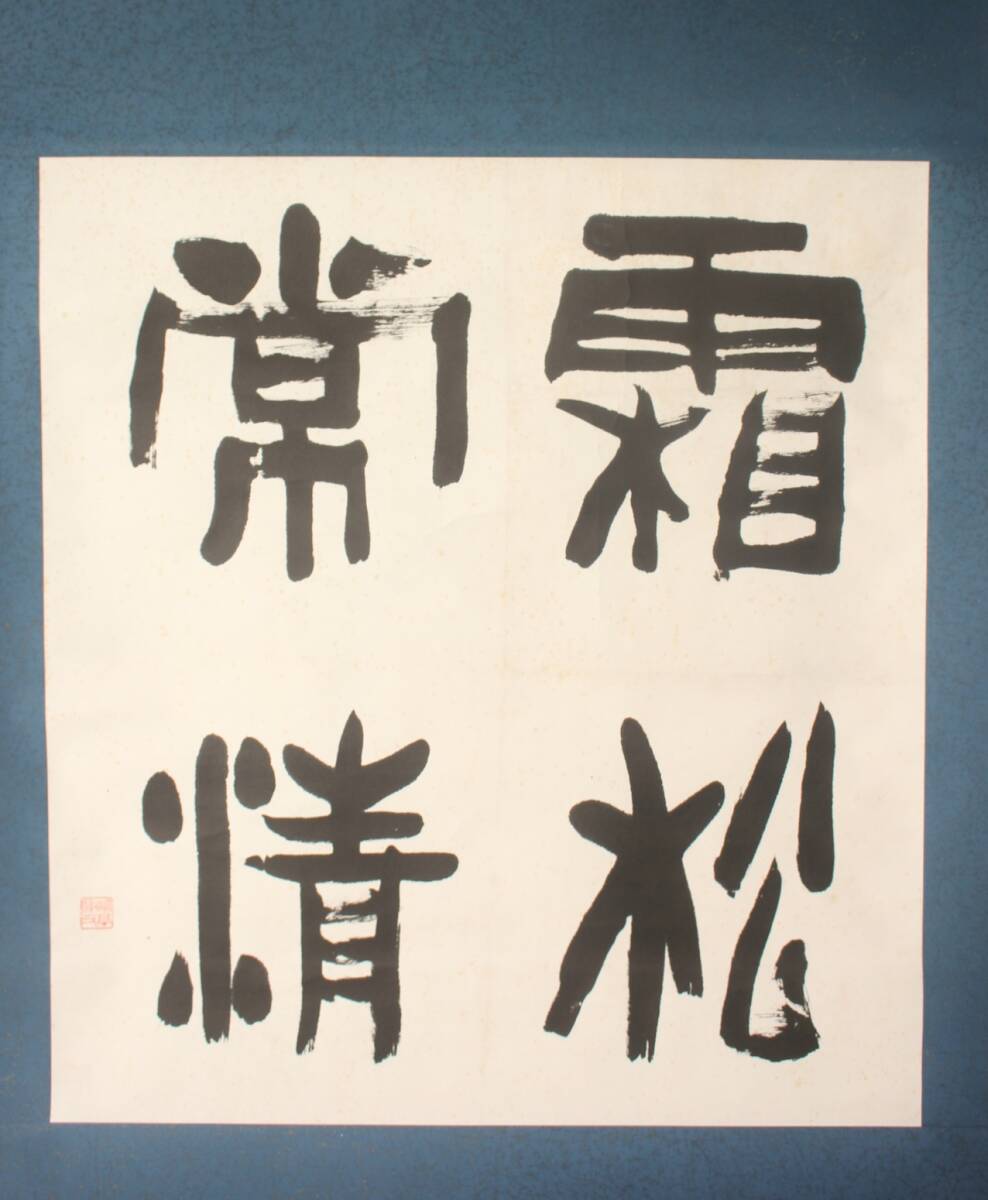 霜松
常清